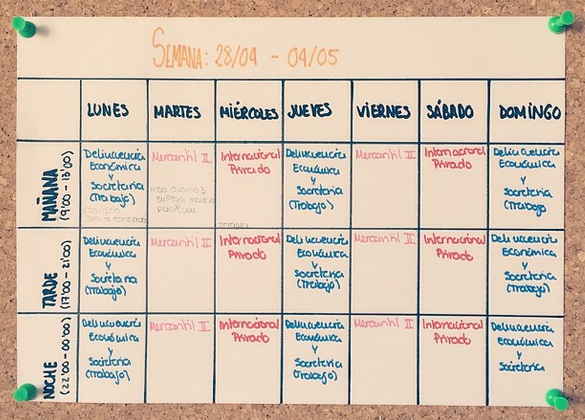 SEMANA: 28/04 - 04/05
LUNES MARTES MIÉRCOLES JUEVES VIERNES SÁBADO DOMINGO
MAÑANA
(9:00 - 13:00)
Delincuencia
Económica
y
Societaria
(Trabajo)
Mercantil II
Internacional
Privado
Delincuencia
Económica
y
Societaria
(Trabajo)
Mercantil II
Internacional
Privado
Delincuencia
Económica
y
Societaria
(Trabajo)
TARDE
(17:00 - 21:00)
Delincuencia
Económica
y
Societaria
(Trabajo)
Mercantil II
Internacional
Privado
Delincuencia
Económica
y
Societaria
(Trabajo)
Mercantil II
Internacional
Privado
Delincuencia
Económica
y
Societaria
(Trabajo)
NOCHE
(22:00 - 00:00)
Delincuencia
Económica
y
Societaria
(Trabajo)
Mercantil II
Internacional
Privado
Delincuencia
Económica
y
Societaria
(Trabajo)
Mercantil II
Internacional
Privado
Delincuencia
Económica
y
Societaria